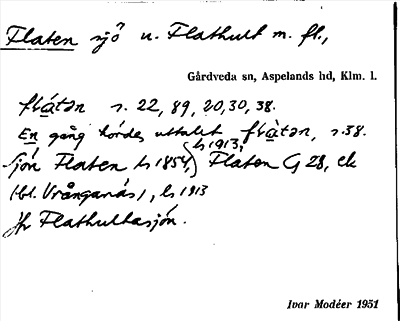 Flaten sjö u. Flathult m. fl.,
Gårdveda sn, Aspelands hd, Klm. l.
flátən s. 22, 89, 20, 30, 38.
En gång hördes uttalet flàtən, s. 38.
Sjön Flaten Ls 1854, Ls 1913, Flaten G 28, ek
(bl. Vrånganäs), Ls 1913
Jfr Flathultasjön.
Ivar Modéer 1951